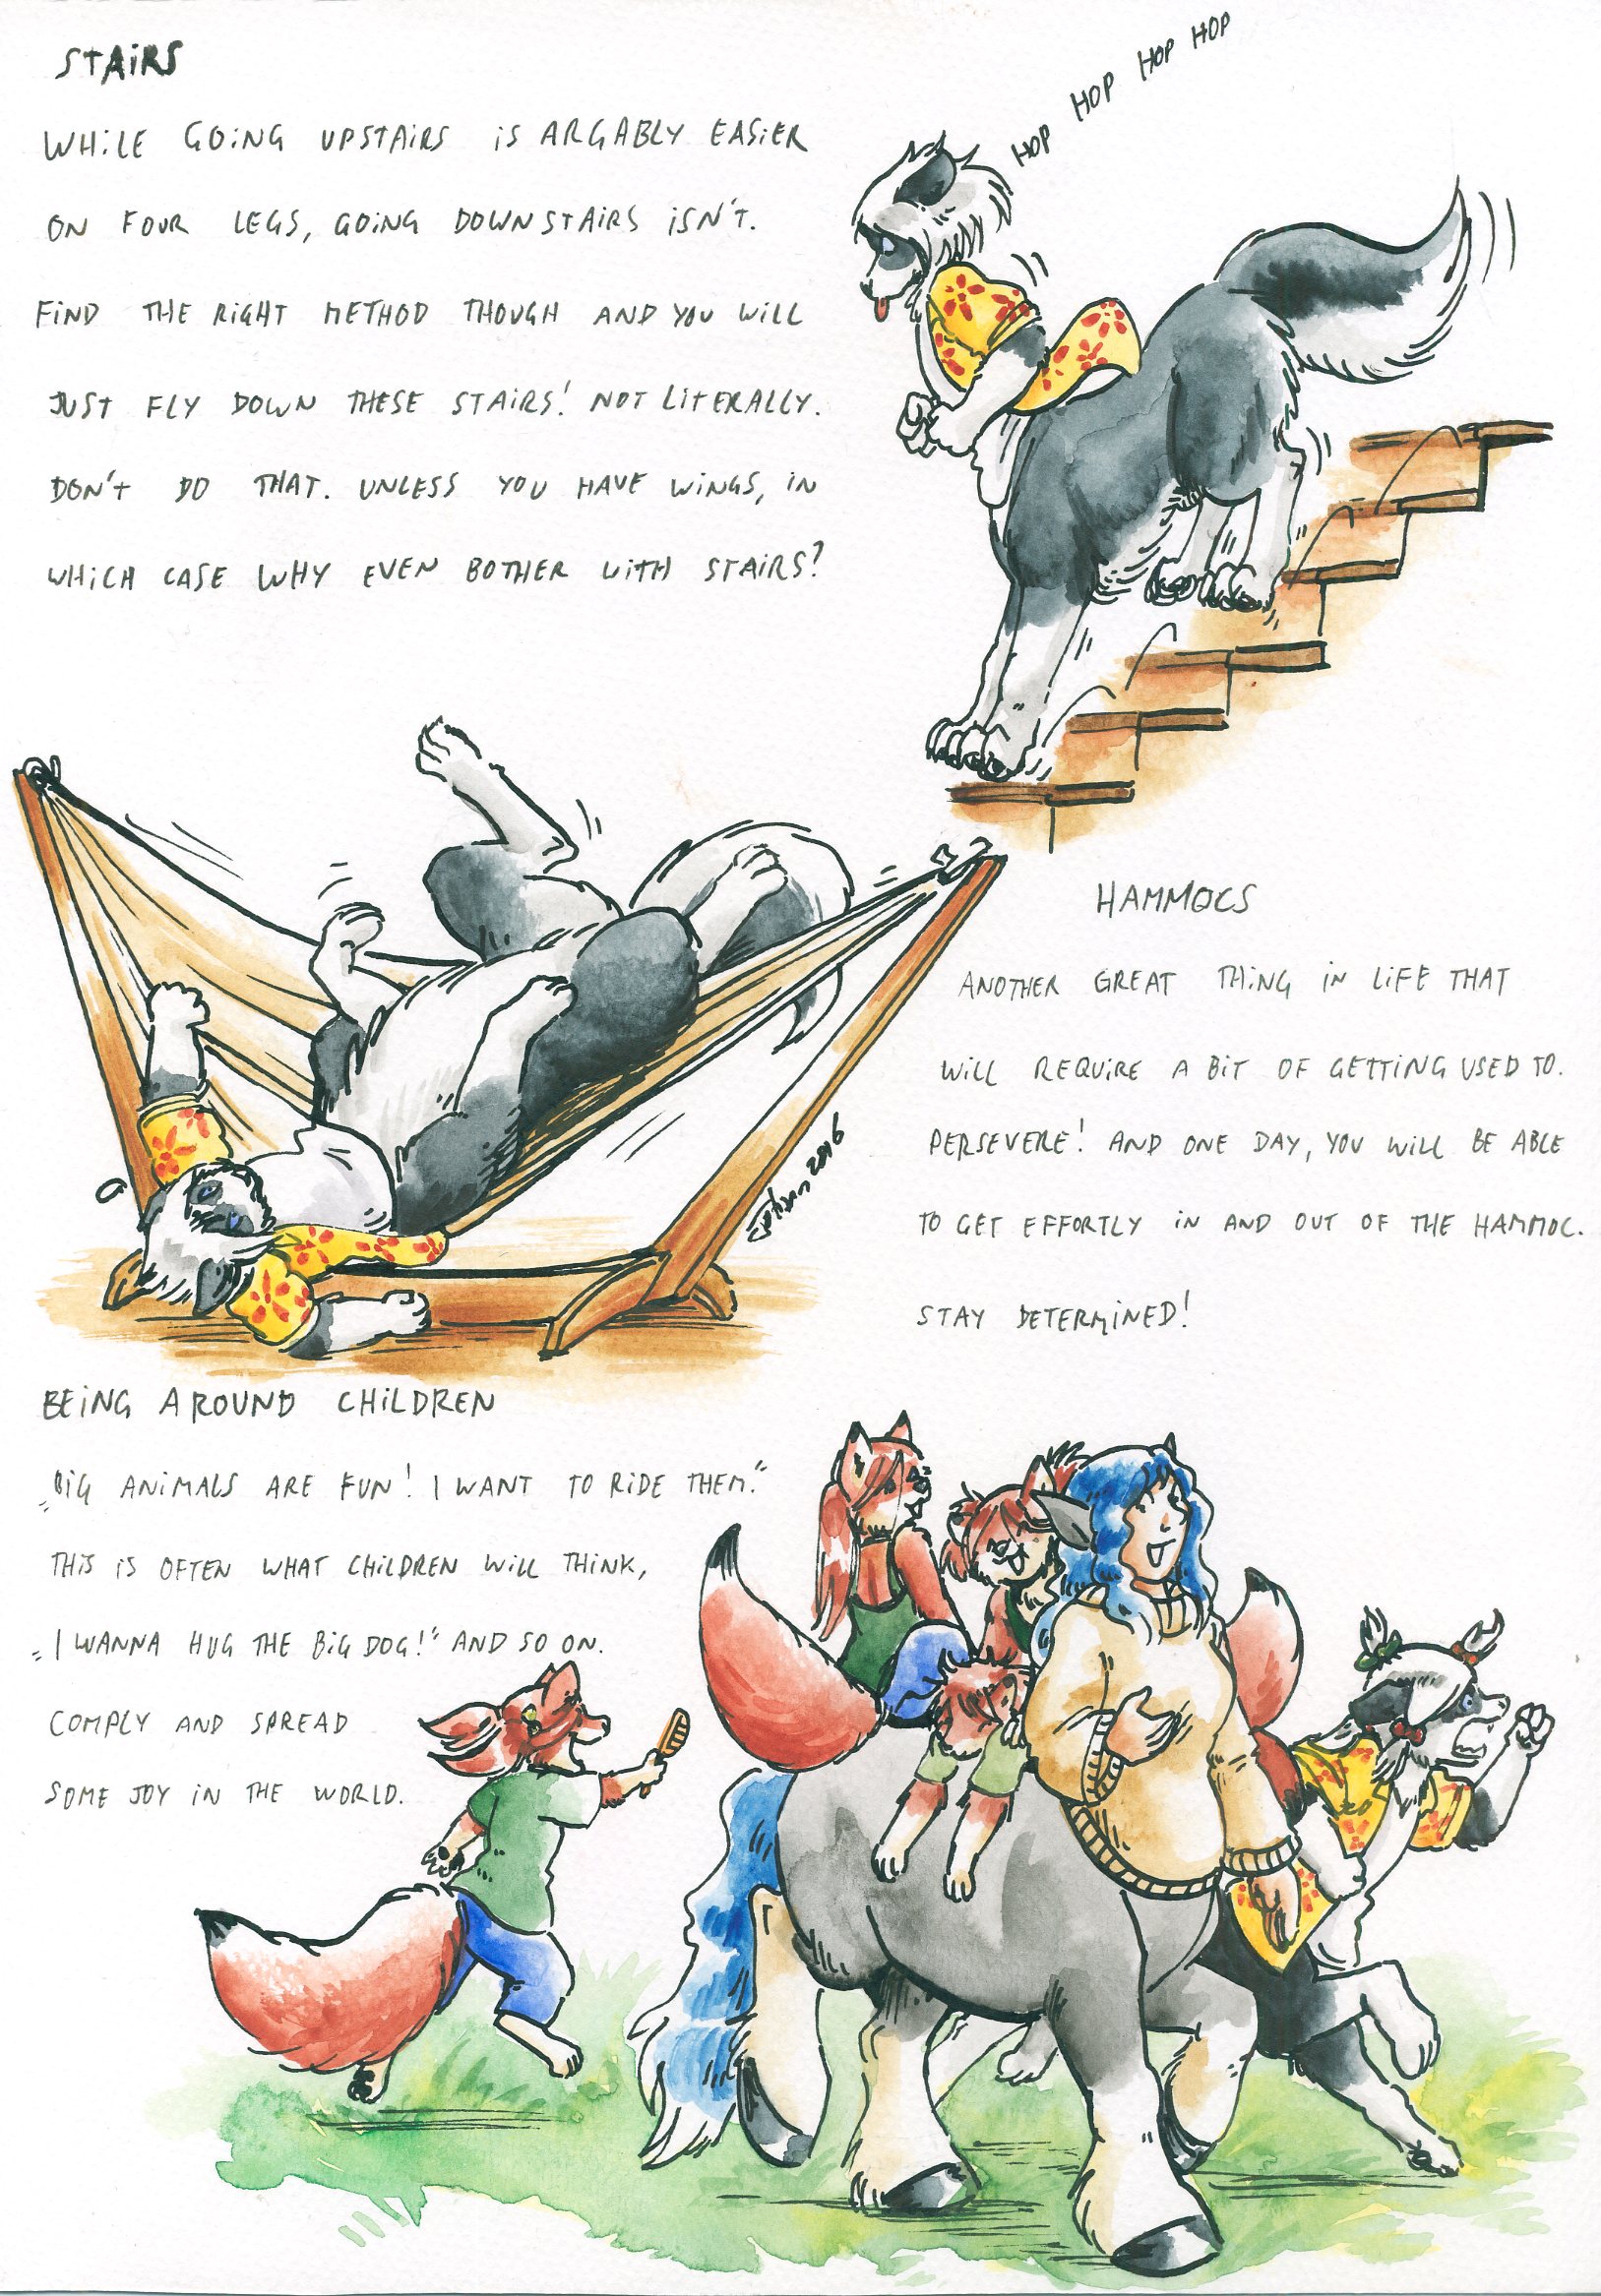 STAIRS
WHILE GOING UPSTAIRS IS ARGABLY EASIER
ON FOUR LEGS, GOING DOWNSTAIRS ISN'T.
FIND THE RIGHT METHOD THOUGH AND YOU WILL
JUST FLY DOWN THESE STAIRS! NOT LITERALLY.
DON'T DO THAT. UNLESS YOU HAVE WINGS, IN
WHICH CASE WHY EVEN BOTHER WITH STAIRS?
HOP HOP HOP HOP
HAMMOCS
ANOTHER GREAT THING IN LIFE THAT
WILL REQUIRE A BIT OF GETTING USED TO.
PERSEVERE! AND ONE DAY, YOU WILL BE ABLE
TO GET EFFORTLY IN AND OUT OF THE HAMMOC.
STAY DETERMINED!
2016
BEING AROUND CHILDREN
„BIG ANIMALS ARE FUN! I WANT TO RIDE THEM.“
THIS IS OFTEN WHAT CHILDREN WILL THINK,
„I WANNA HUG THE BIG DOG!“ AND SO ON.
COMPLY AND SPREAD
SOME JOY IN THE WORLD.